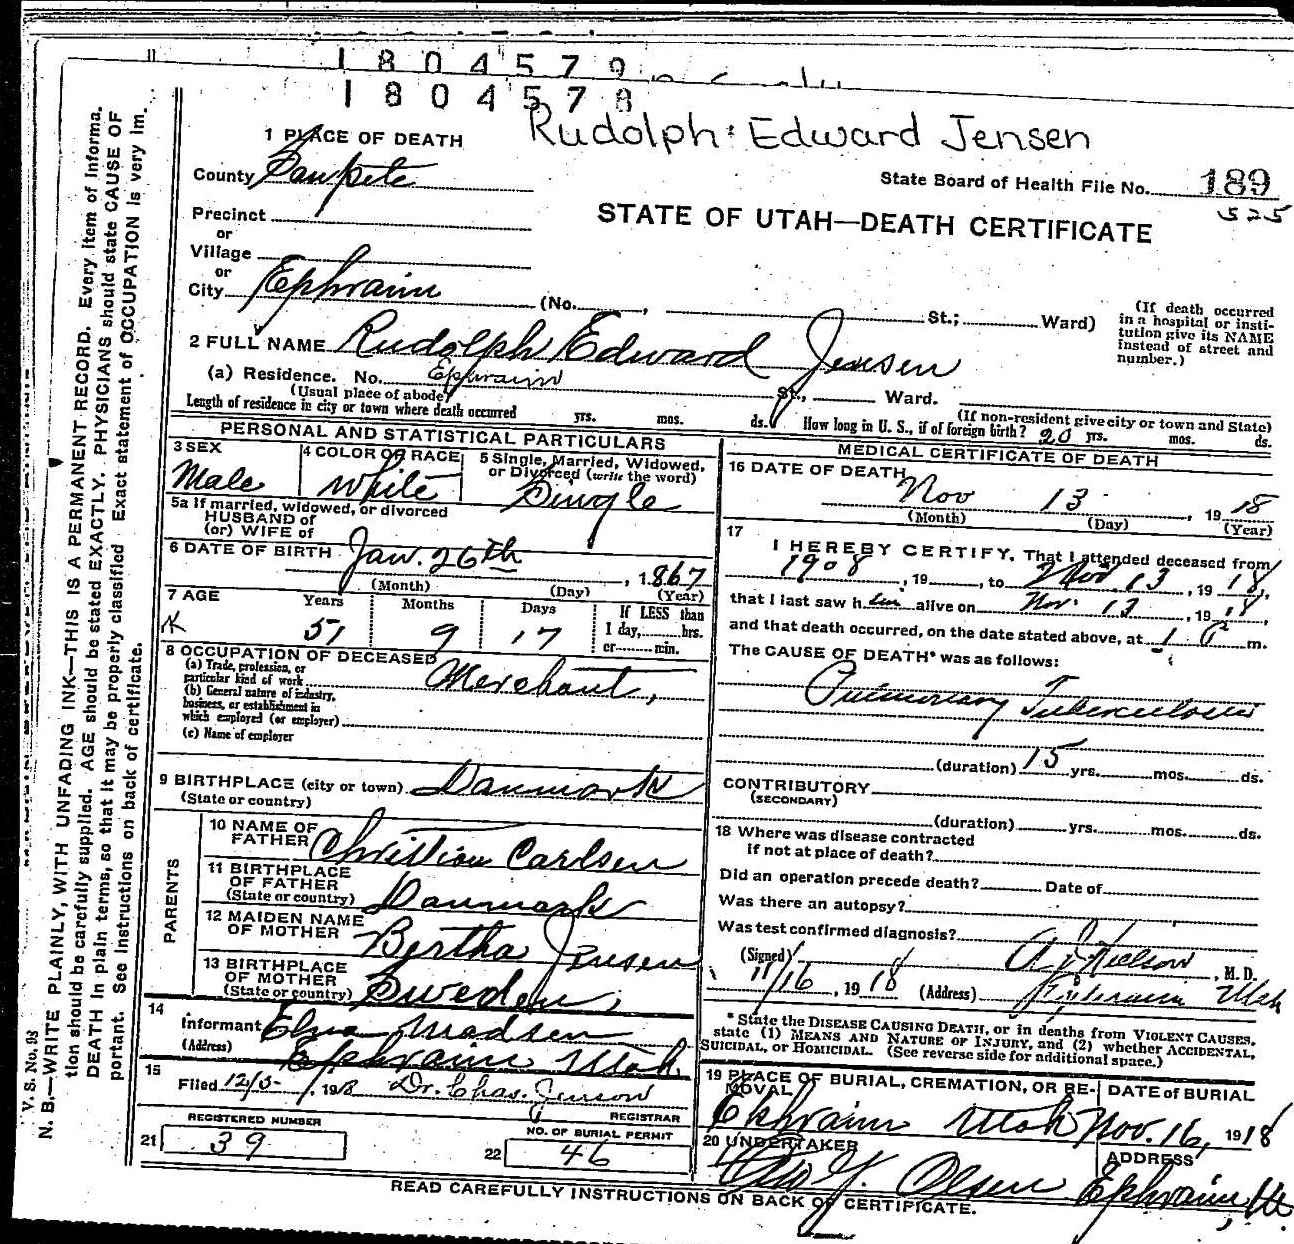 1804579
1804578
Rudolph Edward Jensen
1 PLACE OF DEATH
County Sanpete
State Board of Health File No. 189
525
STATE OF UTAH—DEATH CERTIFICATE
Precinct
or
Village
or
City Ephraim (No. , St.; Ward)
(If death occurred in a hospital or insti-
tution give its NAME
instead of street and
number.)
2 FULL NAME Rudolph Edward Jensen
(a) Residence. No. Ephraim St., Ward.
(Usual place of abode)
(If non-resident give city or town and State)
Length of residence in city or town where death occurred yrs. mos. ds. How long in U. S., if of foreign birth? 20 yrs. mos. ds.
PERSONAL AND STATISTICAL PARTICULARS
3 SEX
Male
4 COLOR OR RACE
White
5 Single, Married, Widowed,
or Divorced (write the word)
Single
5a If married, widowed, or divorced
HUSBAND of
(or) WIFE of
6 DATE OF BIRTH Jan. 26th, 1867
(Month) (Day) (Year)
7 AGE Years Months Days
51 9 17
If LESS than
1 day, hrs.
or min.
8 OCCUPATION OF DECEASED
(a) Trade, profession, or
particular kind of work Merchant,
(b) General nature of industry,
business, or establishment in
which employed (or employer)
(c) Name of employer
9 BIRTHPLACE (city or town) Danmark
(State or country)
PARENTS
10 NAME OF
FATHER Christian Carlsen
11 BIRTHPLACE
OF FATHER
(State or country) Danmark
12 MAIDEN NAME
OF MOTHER Bertha Jensen
13 BIRTHPLACE
OF MOTHER
(State or country) Sweden,
14
Informant Elna Madsen
(Address) Ephraim Utah
15
Filed 12/5-, 1918 Dr. Chas. Jenson
REGISTRAR
REGISTERED NUMBER
21 39
NO. OF BURIAL PERMIT
22 46
MEDICAL CERTIFICATE OF DEATH
16 DATE OF DEATH
Nov 13, 1918
(Month) (Day) (Year)
17
I HEREBY CERTIFY, That I attended deceased from
1908, 19 , to Nov. 13, 1918,
that I last saw him alive on Nov. 13, 1918,
and that death occurred, on the date stated above, at 1 P m.
The CAUSE OF DEATH* was as follows:
Pulmonary Tuberculosis
(duration) 15 yrs. mos. ds.
CONTRIBUTORY
(SECONDARY)
(duration) yrs. mos. ds.
18 Where was disease contracted
if not at place of death?
Did an operation precede death? Date of
Was there an autopsy?
Was test confirmed diagnosis?
(Signed) Nielson, M. D.
11/16, 1918 (Address) Ephraim Utah
* State the DISEASE CAUSING DEATH, or in deaths from VIOLENT CAUSES,
state (1) MEANS AND NATURE OF INJURY, and (2) whether ACCIDENTAL,
SUICIDAL, OR HOMICIDAL. (See reverse side for additional space.)
19 PLACE OF BURIAL, CREMATION, OR RE-
MOVAL
Ephraim Utah
DATE of BURIAL
Nov. 16, 1918
20 UNDERTAKER
Olsen
ADDRESS
Ephraim, Ut.
READ CAREFULLY INSTRUCTIONS ON BACK OF CERTIFICATE.
V. S. No. 98
N. B.—WRITE PLAINLY, WITH UNFADING INK—THIS IS A PERMANENT RECORD. Every item of informa-
tion should be carefully supplied. AGE should be stated EXACTLY. PHYSICIANS should state CAUSE OF
DEATH in plain terms, so that it may be properly classified. Exact statement of OCCUPATION is very im-
portant. See instructions on back of certificate.